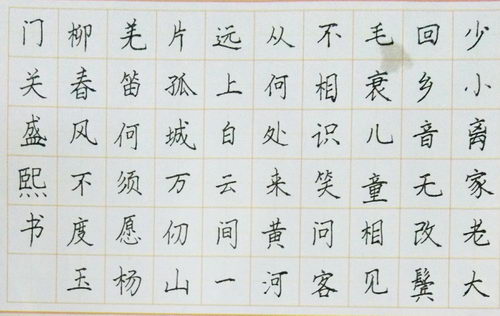 少小离家老大
回乡音无改鬓
毛衰儿童相见
不相识笑问客
从何处来黄河
远上白云间一
片孤城万仞山
羌笛何须愿杨
柳春风不度玉
门关盛熙书